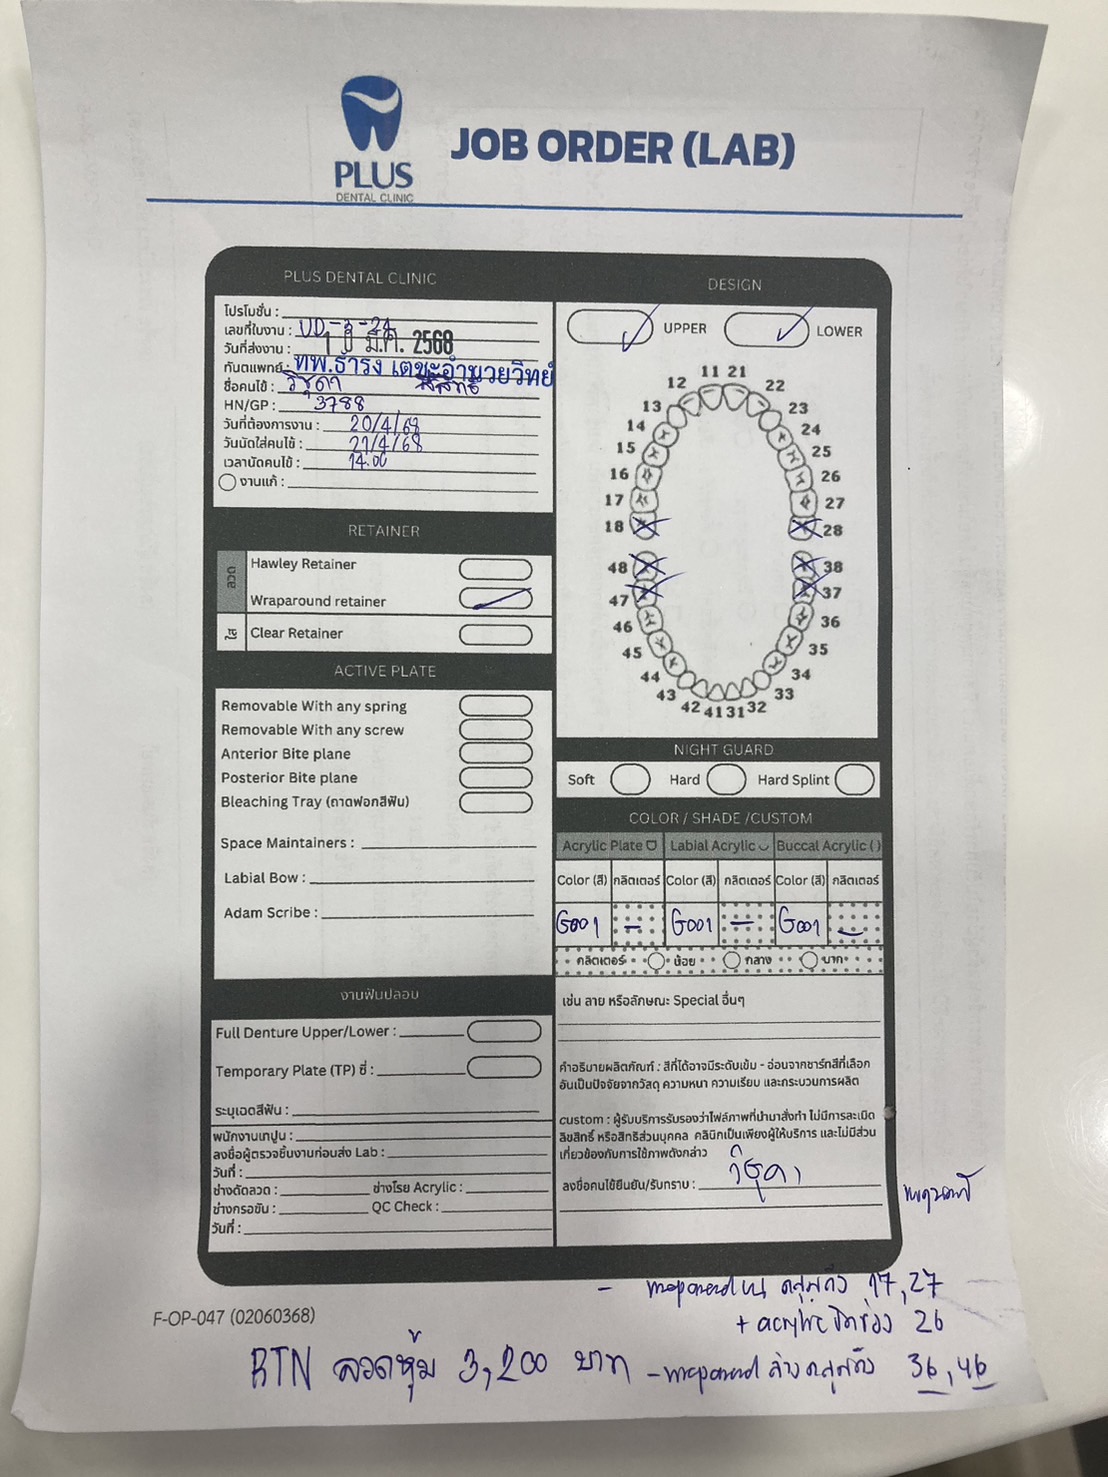 PLUS
DENTAL CLINIC
JOB ORDER (LAB)
PLUS DENTAL CLINIC
โปรโมชั่น :
เลขที่ใบงาน : UD-3-24
วันที่ส่งงาน : มี.ค. 2568
ทันตแพทย์ : ทพ.ธำรง เตชะอำนวยวิทย์
ชื่อคนไข้ : วิชุดา
HN/GP : 3788
วันที่ต้องการงาน : 20/4/68
วันนัดใส่คนไข้ : 21/4/68
เวลานัดคนไข้ : 14.00
งานแก้ :
RETAINER
ลวด
Hawley Retainer
Wraparound retainer
ใส
Clear Retainer
ACTIVE PLATE
Removable With any spring
Removable With any screw
Anterior Bite plane
Posterior Bite plane
Bleaching Tray (ถาดฟอกสีฟัน)
Space Maintainers :
Labial Bow :
Adam Scribe :
งานฟันปลอม
Full Denture Upper/Lower :
Temporary Plate (TP) ซี่ :
ระบุเฉดสีฟัน :
พนักงานเทปูน :
ลงชื่อผู้ตรวจชิ้นงานก่อนส่ง Lab :
วันที่ :
ช่างดัดลวด : ช่างโรย Acrylic :
ช่างกรอขัน : QC Check :
วันที่ :
DESIGN
UPPER LOWER
11 21
12 22
13 23
14 24
15 25
16 26
17 27
18 28
48 38
47 37
46 36
45 35
44 34
43 33
42 41 31 32
NIGHT GUARD
Soft Hard Hard Splint
COLOR / SHADE /CUSTOM
Acrylic Plate Labial Acrylic Buccal Acrylic ( )
Color (สี) กลิตเตอร์ Color (สี) กลิตเตอร์ Color (สี) กลิตเตอร์
G001 – G001 – G001 –
กลิตเตอร์ น้อย กลาง มาก
เช่น ลาย หรือลักษณะ Special อื่นๆ
คำอธิบายผลิตภัณฑ์ : สีที่ได้อาจมีระดับเข้ม - อ่อนจากชาร์ทสีที่เลือก
อันเป็นปัจจัยจากวัสดุ ความหนา ความเรียบ และกระบวนการผลิต
custom : ผู้รับบริการรับรองว่าไฟล์ภาพที่นำมาสั่งทำ ไม่มีการละเมิด
ลิขสิทธิ์ หรือสิทธิส่วนบุคคล คลินิกเป็นเพียงผู้ให้บริการ และไม่มีส่วน
เกี่ยวข้องกับการใช้ภาพดังกล่าว
ลงชื่อคนไข้ยืนยัน/รับทราบ : วิชุดา
17, 27
+ acrylic ปิดช่อง 26
F-OP-047 (02060368)
RTN ลวดหุ้ม 3,200 บาท
36, 46